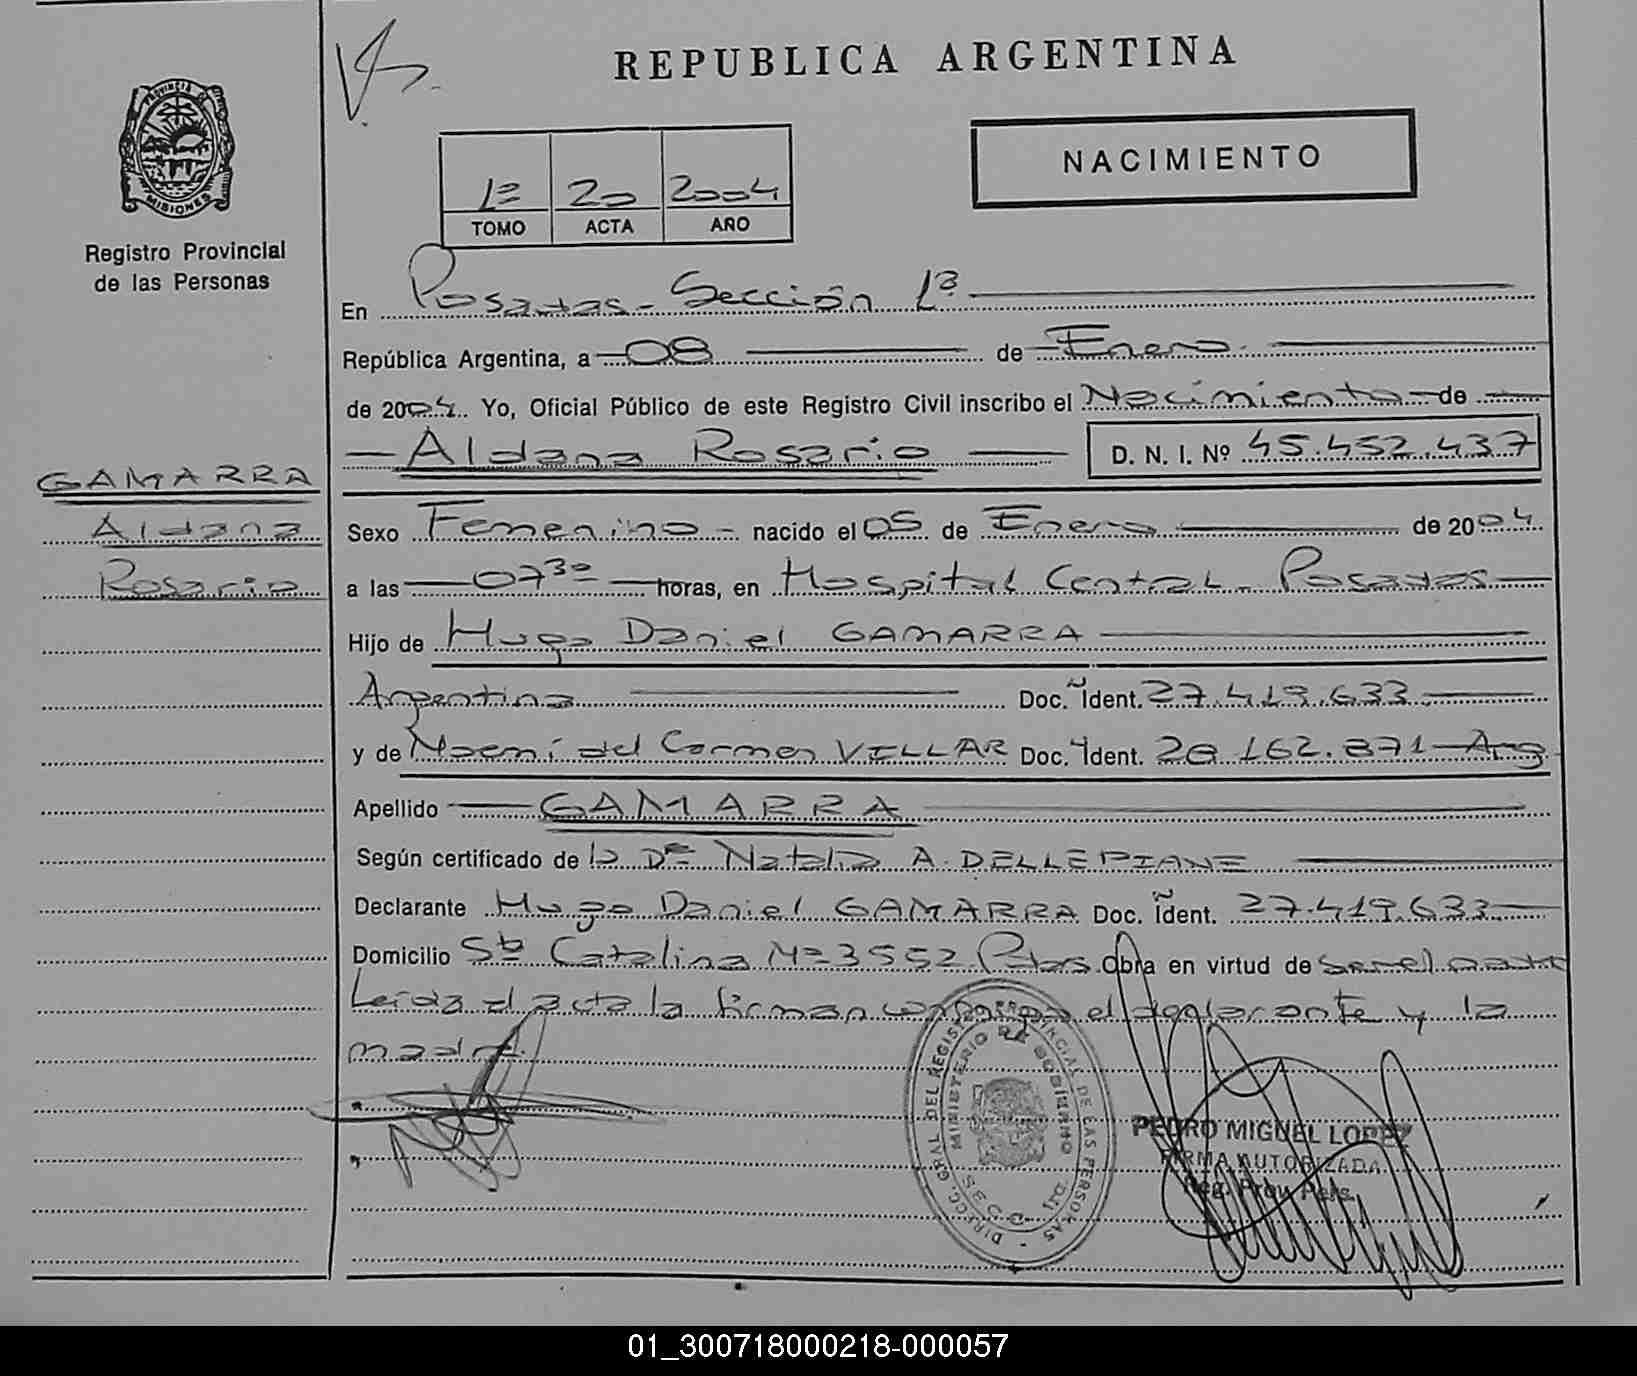 REPUBLICA ARGENTINA
NACIMIENTO
PROVINCIA DE
MISIONES
Registro Provincial
de las Personas
1º 20 2004
TOMO ACTA AÑO
En Posadas - Sección 1ª
República Argentina, a 08 de Enero
de 2004. Yo, Oficial Público de este Registro Civil inscribo el Nacimiento de
Aldana Rosario D. N. I. Nº 45.452.437
GAMARRA
Aldana
Rosario
Sexo Femenino - nacido el 05 de Enero de 2004
a las 07 30 horas, en Hospital Central - Posadas
Hijo de Hugo Daniel GAMARRA
Argentina Doc. Ident. 27.419.633
y de Noemí del Carmen VILLAR Doc. Ident. 28.162.871 - Arg
Apellido GAMARRA
Según certificado de la Dra Natalia A. DELLEPIANE
Declarante Hugo Daniel GAMARRA Doc. Ident. 27.419.633
Domicilio Sta Catalina Nº 3552 Pdas. Obra en virtud de
Leída el acta la firman conmigo el declarante y la
madre.
DIRECC. GRAL. DEL REGISTRO PROVINCIAL DE LAS PERSONAS
MINISTERIO DE GOBIERNO
PEDRO MIGUEL LOPEZ
FIRMA AUTORIZADA
Reg. Prov. Pers.
01_300718000218-000057